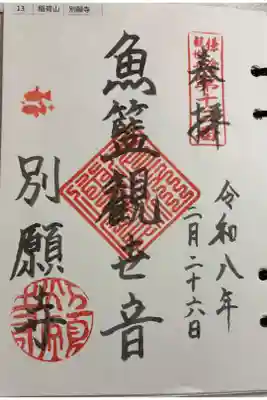 13 稲荷山 別願寺
奉拝
令和八年
二月二十六日
魚籃觀世音
別願寺